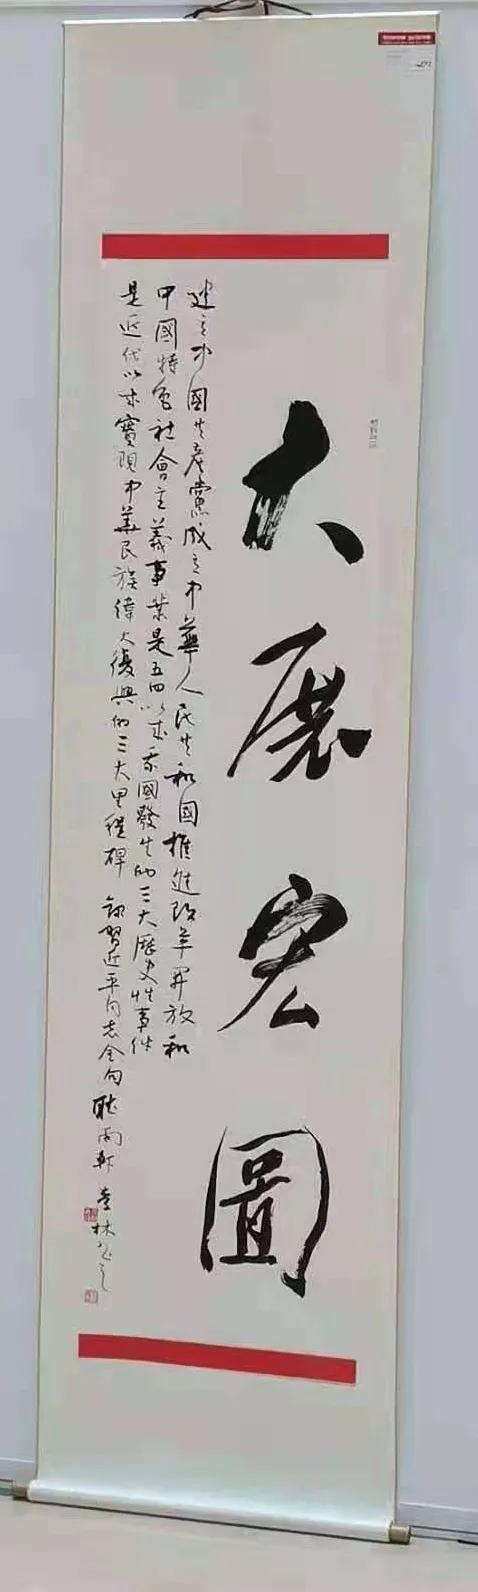 大展宏圖
建立中國共產黨成立中華人民共和國推進改革開放和
中國特色社會主義事業是五四以來我國發生的三大歷史性事件
是近代以來實現中華民族偉大復興的三大里程碑 錄習近平同志金句 聽雨軒